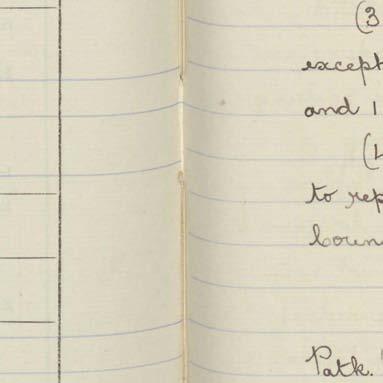 (3
except
and 1
(4
to rep
boun
Patk.